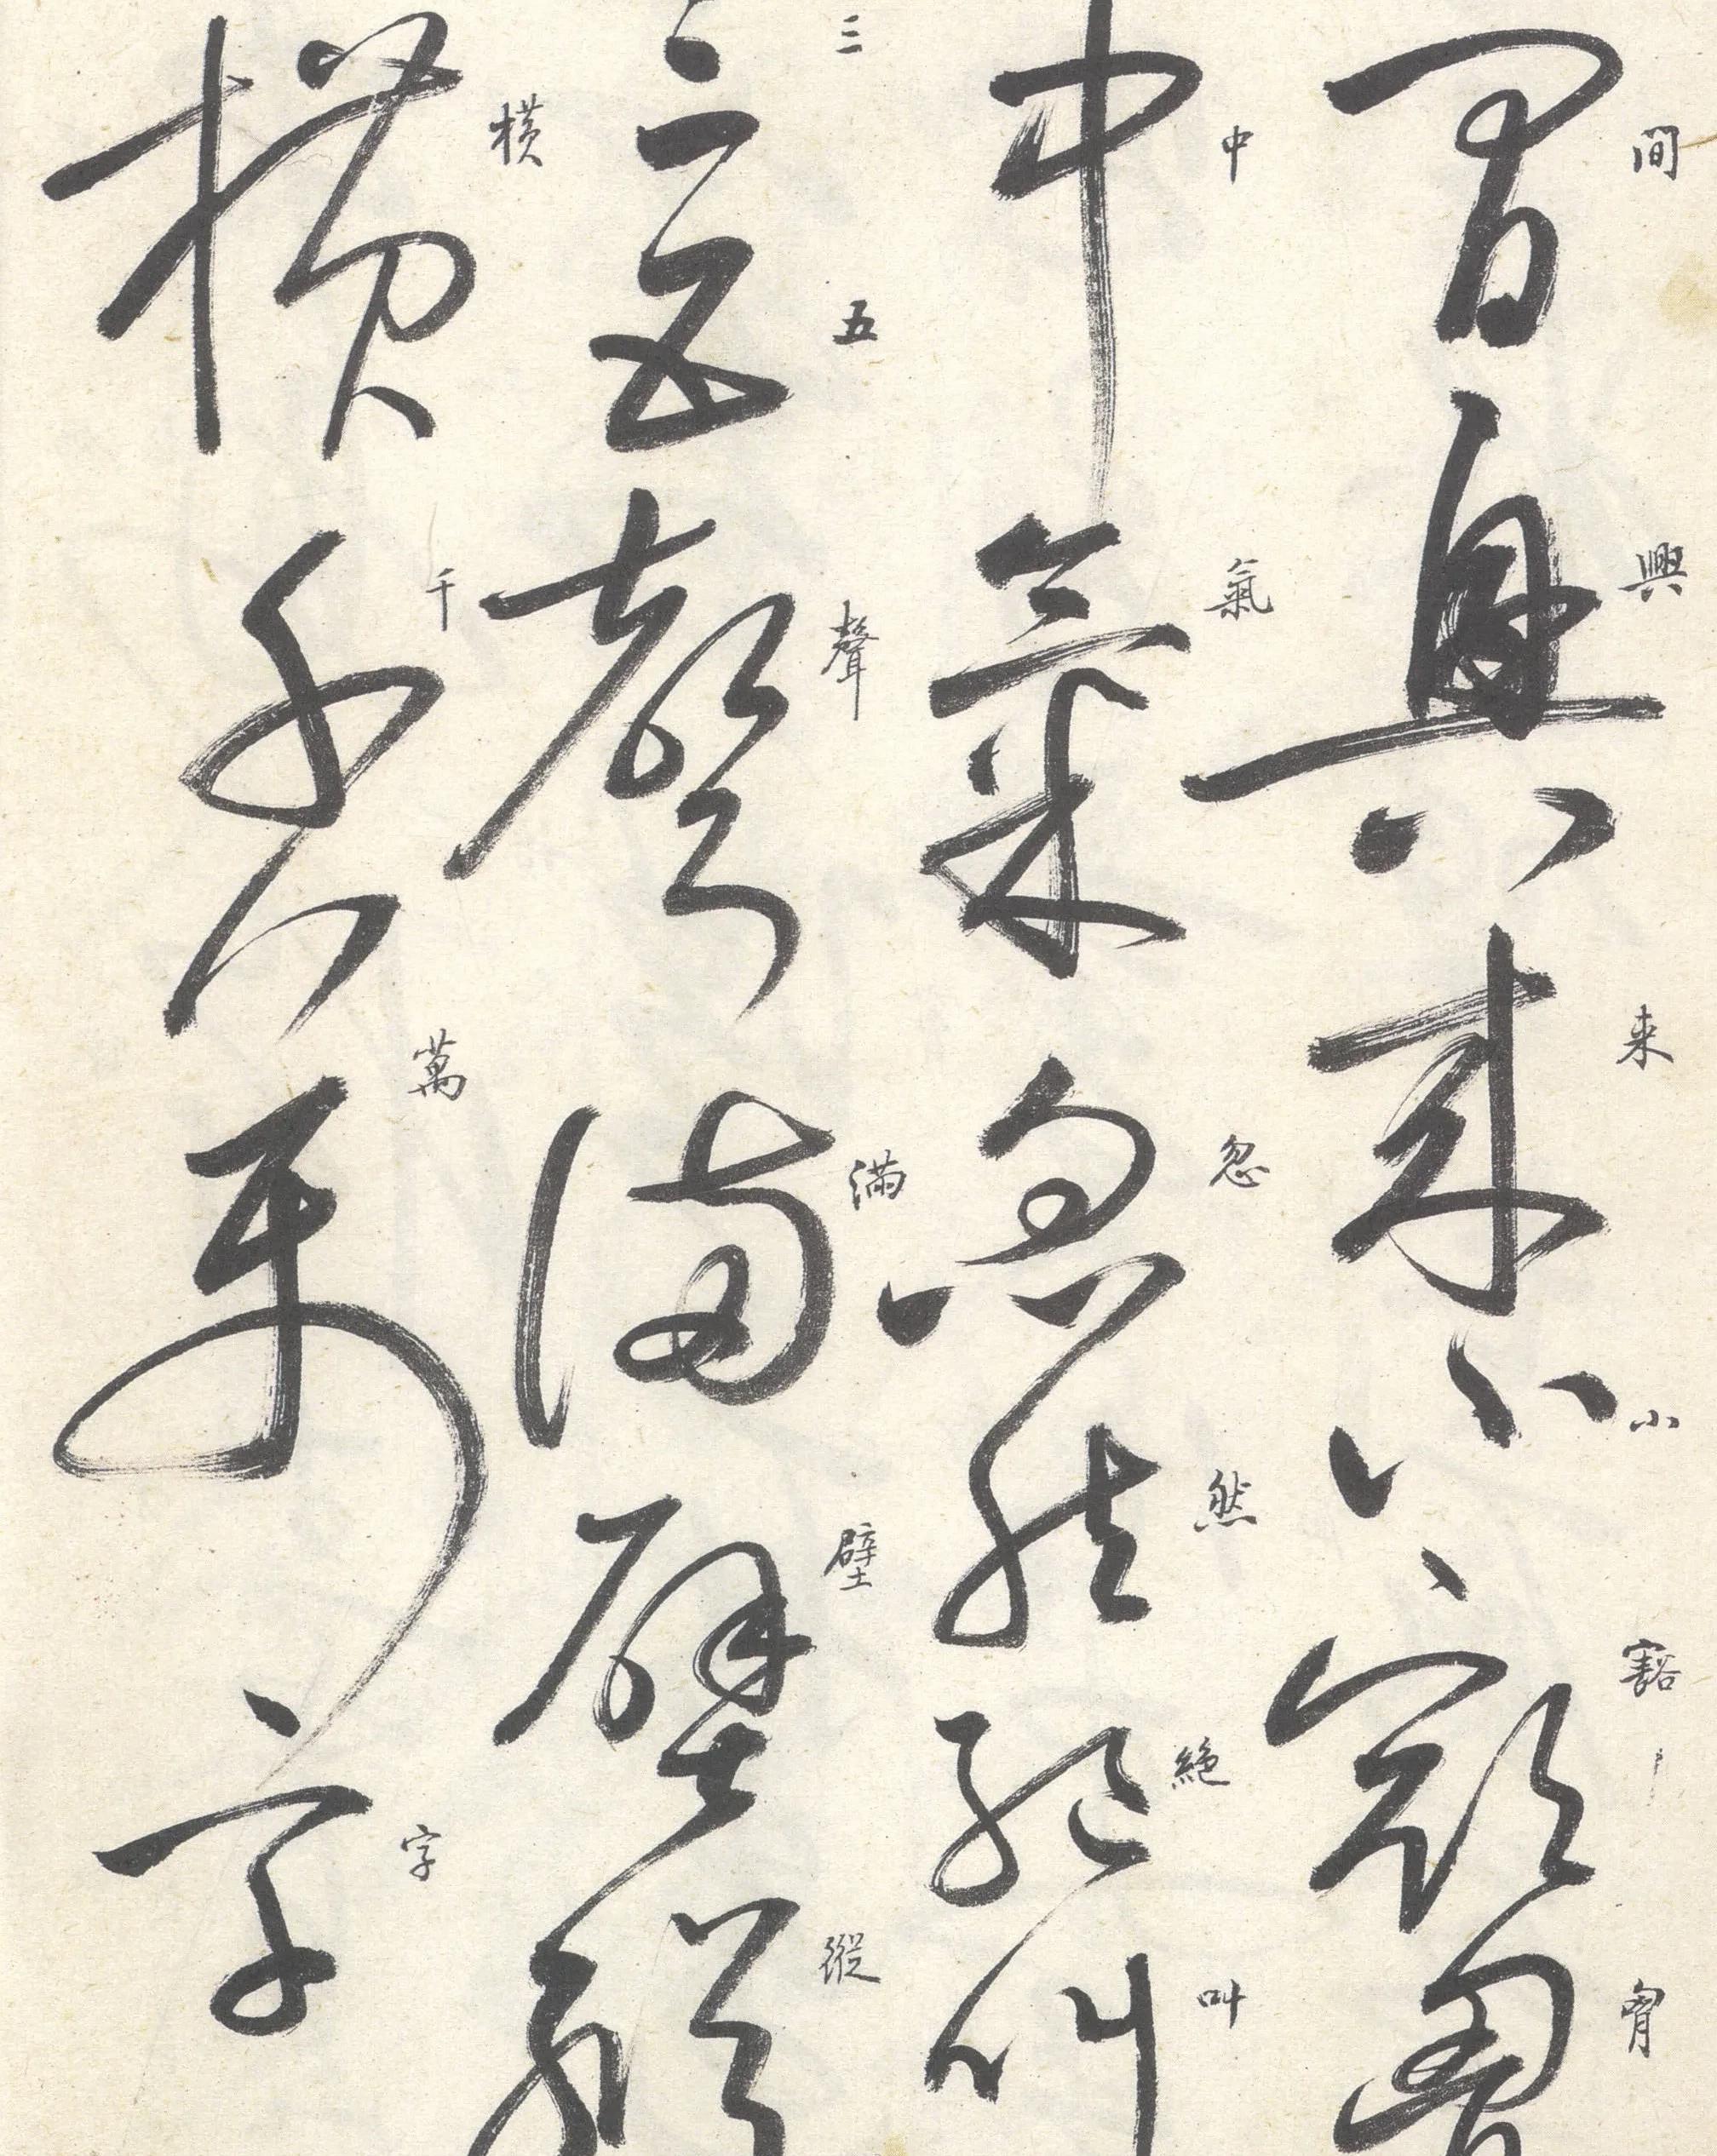 間興来小豁胷
中氣忽然絶叫
三五聲滿壁縱
橫千萬字